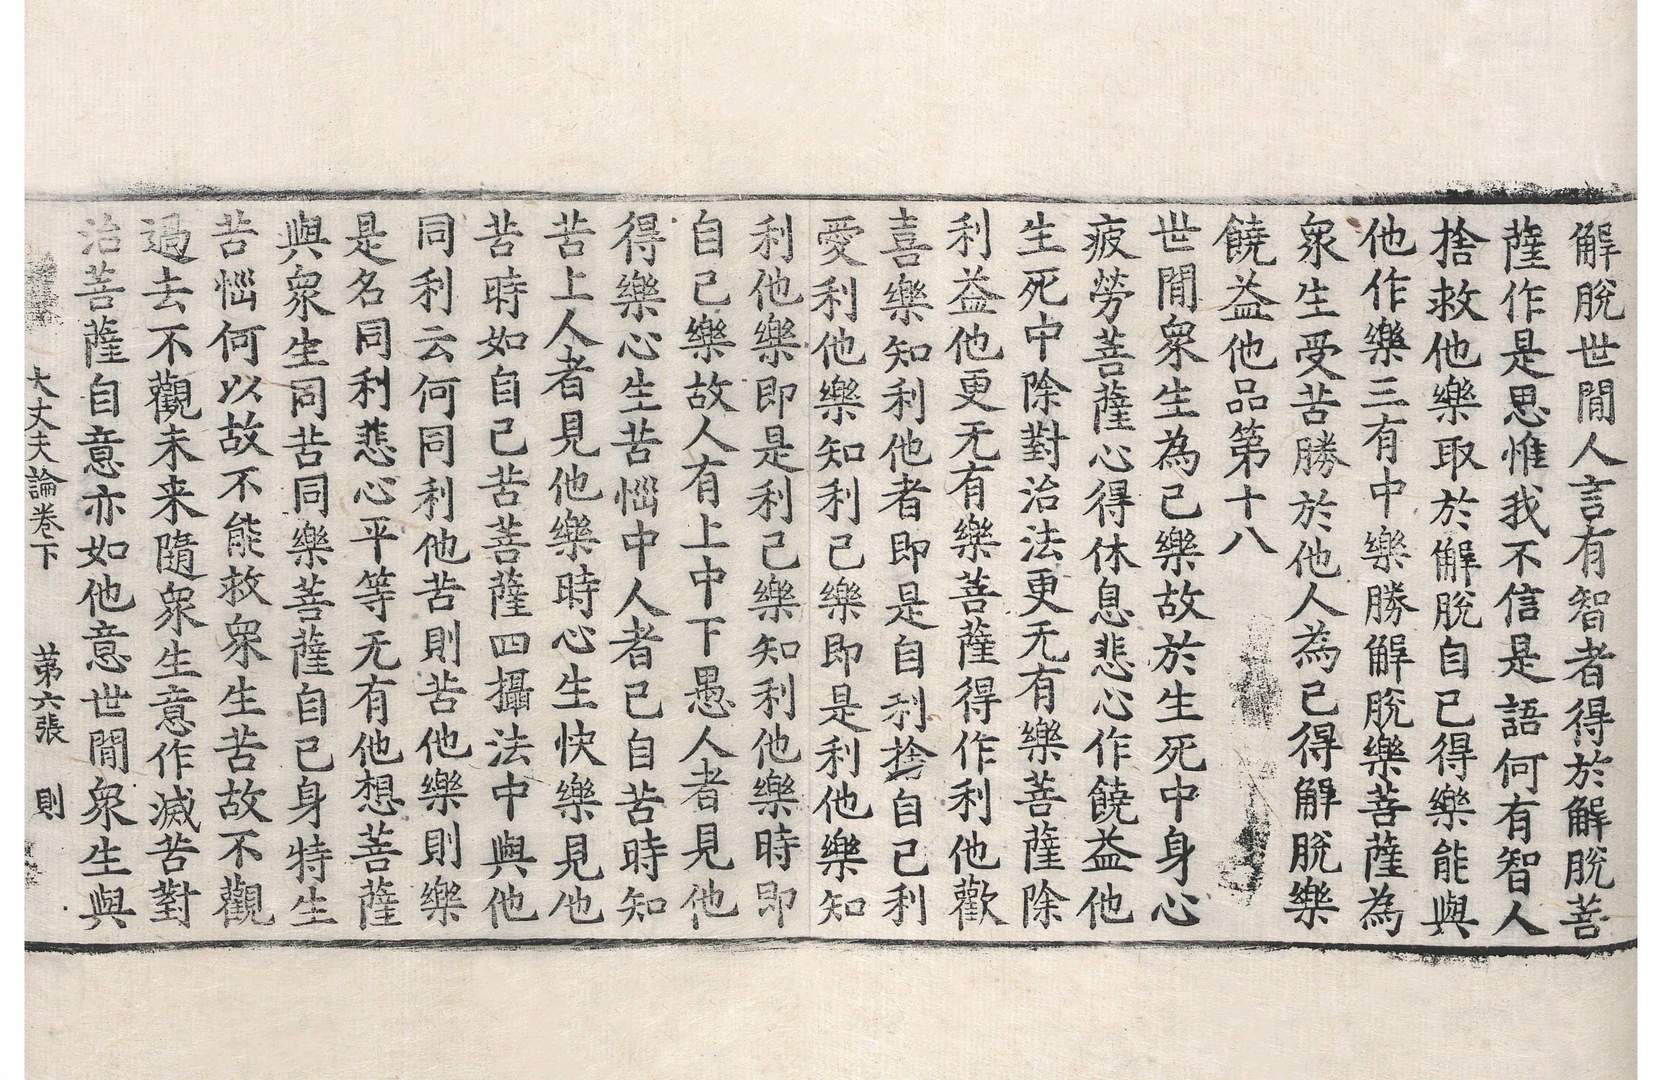 解脫世間人言有智者得於解脫菩
薩作是思惟我不信是語何有智人
捨救他樂取於解脫自己得樂能與
他作樂三有中樂勝解脫樂菩薩為
衆生受苦勝於他人為己得解脫樂
饒益他品第十八
世間衆生為己樂故於生死中身心
疲勞菩薩心得休息悲心作饒益他
生死中除對治法更无有樂菩薩除
利益他更无有樂菩薩得作利他歡
喜樂知利他者即是自利捨自己利
愛利他樂知利己樂即是利他樂知
利他樂即是利己樂知利他樂時即
自己樂故人有上中下愚人者見他
得樂心生苦惱中人者己自苦時知
苦上人者見他樂時心生快樂見他
苦時如自己苦菩薩四攝法中與他
同利云何同利他苦則苦他樂則樂
是名同利悲心平等无有他想菩薩
與衆生同苦同樂菩薩自己身特生
苦惱何以故不能救衆生苦故不觀
過去不觀未来隨衆生意作滅苦對
治菩薩自意亦如他意世間衆生與
大丈夫論卷下　第六張　則